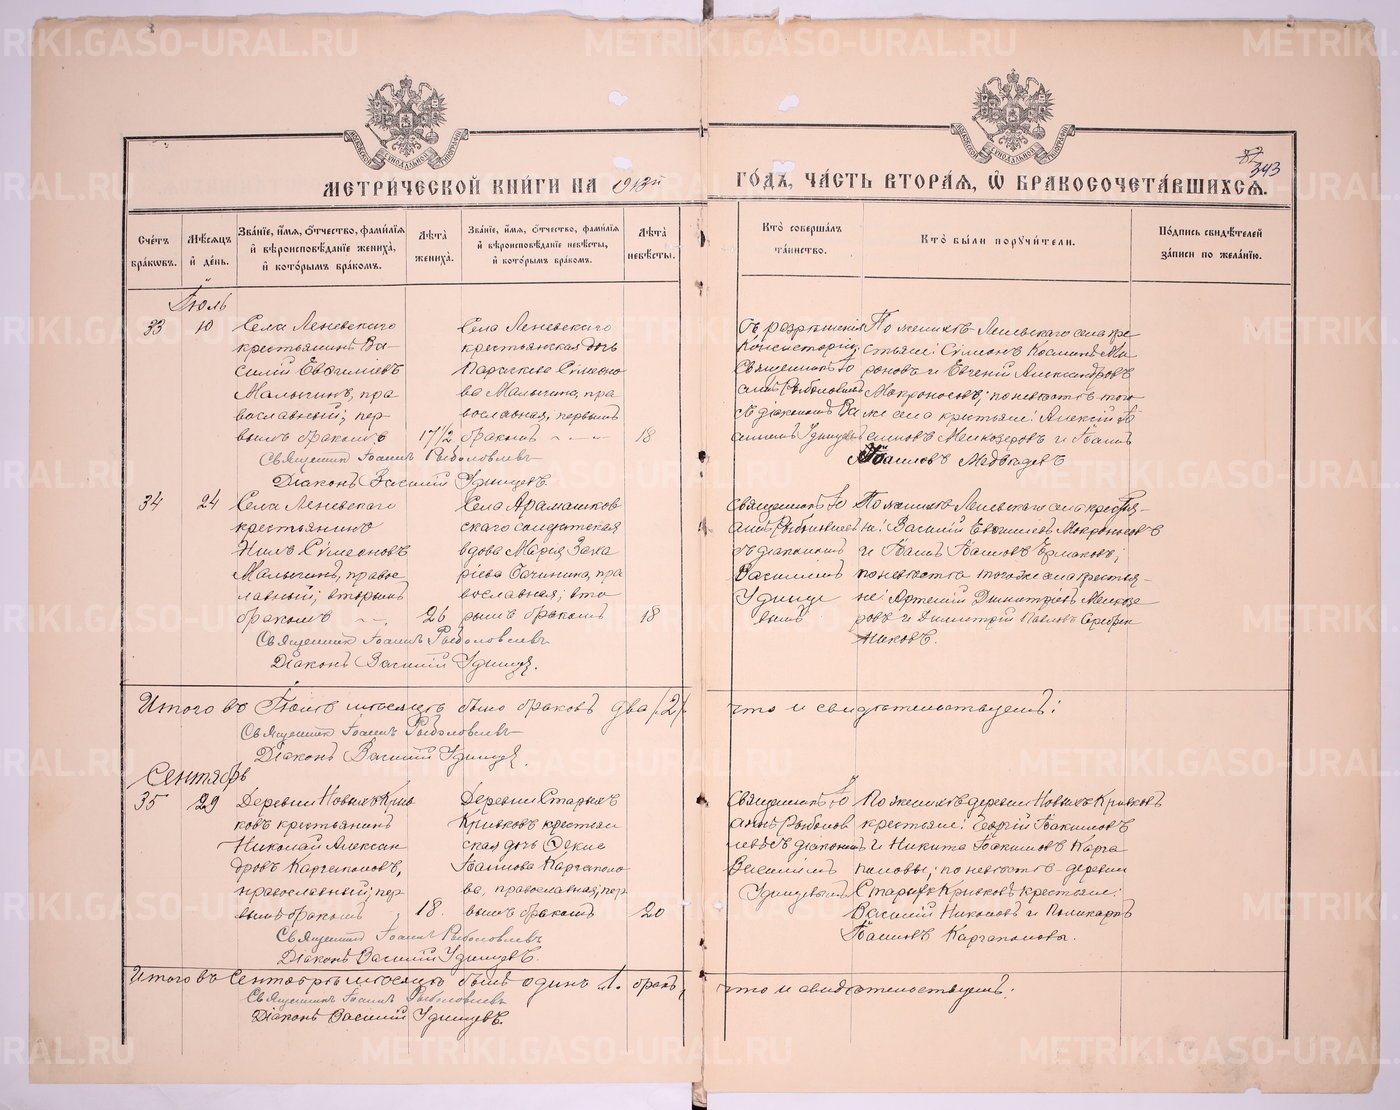 METRIKI.GASO-URAL.RU
МЕТРИ́ЧЕСКОЙ КНИ́ГИ НА 1913й
ГО́ДЪ, ЧА́СТЬ ВТОРА́Я, Ѡ БРАКОСОЧЕТА́ВШИХСЯ.
343
Сче́тъ бра́кѡвъ.
Мѣ́сяцъ и́ де́нь.
Зва́нїе, и́мя, ѻ́тчество, фами́лїя и́ вѣроисповѣ́данїе жениха̀, и́ кото́рымъ бра́комъ.
Лѣта̀ жениха̀.
Зва́нїе, и́мя, ѻ́тчество, фами́лїя и́ вѣроисповѣ́данїе невѣ́сты, и́ кото́рымъ бра́комъ.
Лѣта̀ невѣ́сты.
Кто̀ соверша́лъ та́инство.
Кто̀ бы́ли порꙋчи́тели.
По́дпись свидѣ́телей за́писи по жела́нїю.
Іюль
33
10
Села Леневскаго
крестьянинъ Ва-
силій Евфиміевъ
Малыгинъ, пра
вославный; пер
вымъ бракомъ
17 1/2
Села Леневскаго
крестьянская дочь
Параскева Симеоно
ва Малыгина, пра
вославная, первымъ
бракомъ
18
Съ разрѣшенія
Консисторіи;
Священникъ Іо
аннъ Рыболовлевъ
съ діакономъ Ва
силіемъ Удинцевымъ
По женихѣ Леневскаго села кре
стьяне: Симеонъ Косминъ Ми
роновъ и Евгеній Александровъ
Мокроносовъ; по невѣстѣ того
же села крестьяне: Алексій Іо
анновъ Мелкозеровъ и Іоаннъ
Іоанновъ Медвѣдевъ
Священникъ Іоаннъ Рыболовлевъ
Діаконъ Василій Удинцевъ
34
24
Села Леневскаго
крестьянинъ
Нилъ Симеоновъ
Малыгинъ, право
славный; вторымъ
бракомъ
26
Села Арамашков
скаго солдатская
вдова Марія Заха
ріева Бачинина, пра
вославная; вто
рымъ бракомъ
18
Священникъ Іо
аннъ Рыболовлевъ
съ діакономъ
Василіемъ
Удинце
вымъ
По женихѣ Леневскаго села крестья-
не: Василій Евфиміевъ Мокроносовъ
и Іоаннъ Іоанновъ Ермаковъ;
по невѣстѣ того же села крестья-
не: Артемій Димитріевъ Мелкозе
ровъ и Димитрій Павловъ Серебрен
никовъ.
Священникъ Іоаннъ Рыболовлевъ
Діаконъ Василій Удинцевъ.
Итого въ Іюлѣ мѣсяцѣ было браковъ два /2/.
что и свидѣтельствуемъ:
Священникъ Іоаннъ Рыболовлевъ
Діаконъ Василій Удинцевъ.
Сентябрь
35
29
Деревни Новыхъ Крив
ковъ крестьянинъ
Николай Алексан
дровъ Каргаполовъ,
православный; пер
вымъ бракомъ
18.
Деревни Старыхъ
Кривковъ крестьян
ская дочь Ѳекла
Іоаннова Каргаполо
ва, православная; пер
вымъ бракомъ
20
Священникъ Іо
аннъ Рыболов
левъ съ діакономъ
Василіемъ
Удинцевымъ
По женихѣ деревни Новыхъ Кривковъ
крестьяне: Георгій Іоакимовъ
и Никита Іоакимовъ Карга
половы; по невѣстѣ деревни
Старыхъ Кривковъ крестьяне:
Василій Никоновъ и Поликарпъ
Іоанновъ Каргаполовы.
Священникъ Іоаннъ Рыболовлевъ
Діаконъ Василій Удинцевъ.
Итого въ Сентябрѣ мѣсяцѣ былъ одинъ "1" бракъ,
что и свидѣтельствуемъ:
Священникъ Іоаннъ Рыболовлевъ
Діаконъ Василій Удинцевъ.